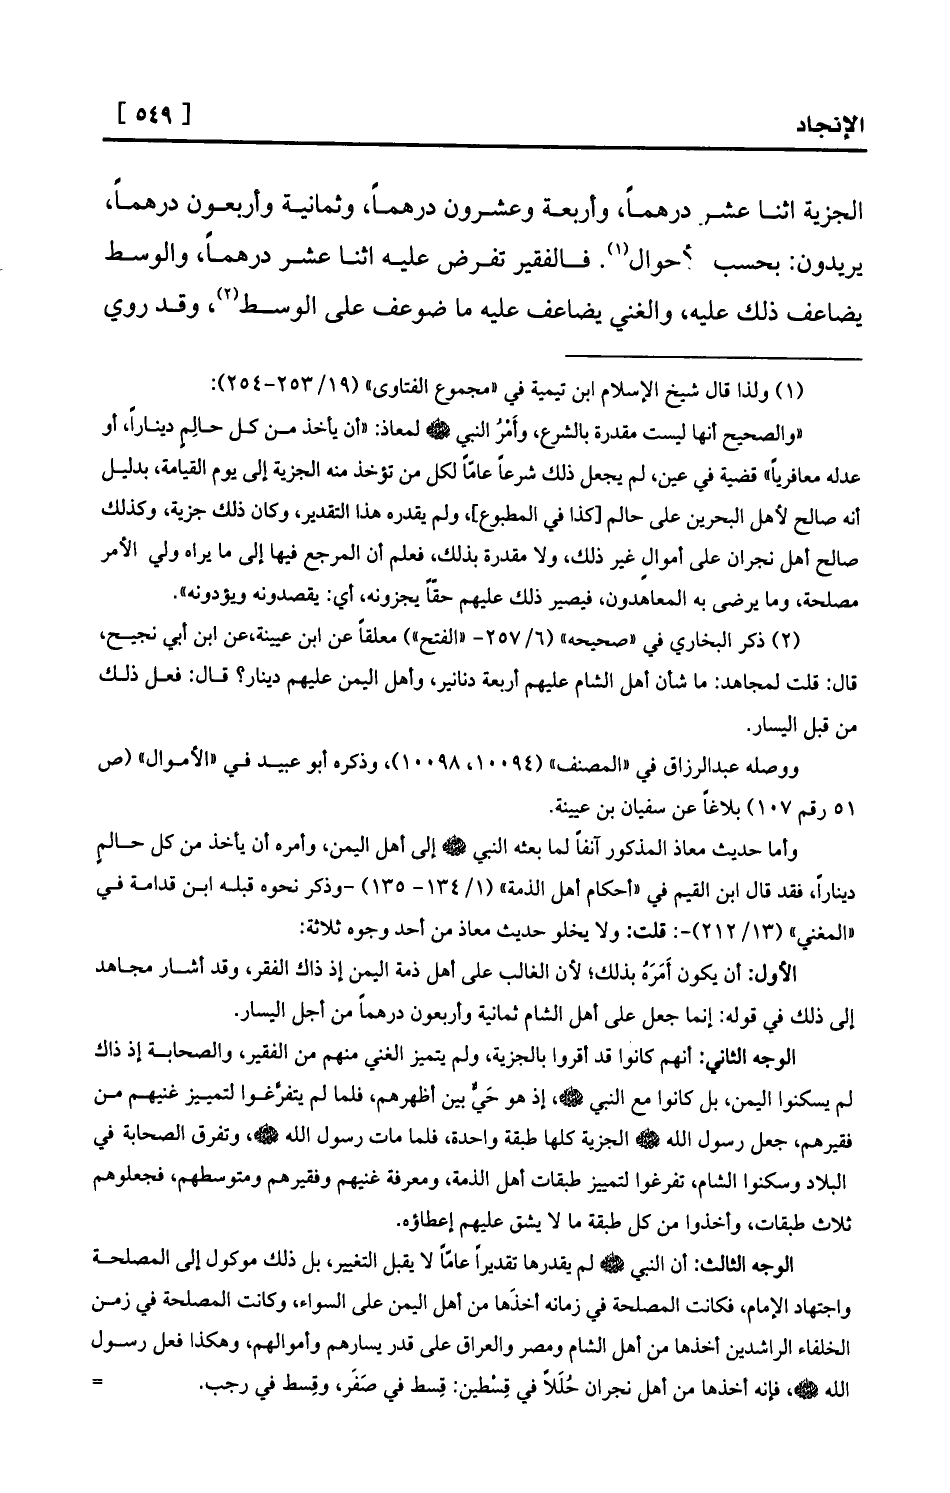 الإنجاد [ ٥٤٩ ]
الجزية اثنا عشر درهماً، وأربعة وعشرون درهماً، وثمانية وأربعون درهماً،
يريدون: بحسب حوال(١). فالفقير تفرض عليه اثنا عشر درهماً، والوسط
يضاعف ذلك عليه، والغني يضاعف عليه ما ضوعف على الوسط(٢)، وقد روي
(١) ولذا قال شيخ الإسلام ابن تيمية في «مجموع الفتاوى» (١٩/ ٢٥٣-٢٥٤):
«والصحيح أنها ليست مقدرة بالشرع، وأَمْرُ النبي ﷺ لمعاذ: «أن يأخذ من كل حالِمٍ ديناراً، أو
عدله معافرياً» قضية في عين، لم يجعل ذلك شرعاً عامّاً لكل من تؤخذ منه الجزية إلى يوم القيامة، بدليل
أنه صالح لأهل البحرين على حالم [كذا في المطبوع]، ولم يقدره هذا التقدير، وكان ذلك جزية، وكذلك
صالح أهل نجران على أموالٍ غير ذلك، ولا مقدرة بذلك، فعلم أن المرجع فيها إلى ما يراه ولي الأمر
مصلحة، وما يرضى به المعاهدون، فيصير ذلك عليهم حقّاً يجزونه، أي: يقصدونه ويؤدونه».
(٢) ذكر البخاري في «صحيحه» (٦/ ٢٥٧- «الفتح») معلقاً عن ابن عيينة،عن ابن أبي نجيح،
قال: قلت لمجاهد: ما شأن أهل الشام عليهم أربعة دنانير، وأهل اليمن عليهم دينار؟ قال: فعل ذلك
من قبل اليسار.
ووصله عبدالرزاق في «المصنف» (١٠٠٩٤، ١٠٠٩٨)، وذكره أبو عبيد في «الأموال» (ص
٥١ رقم ١٠٧) بلاغاً عن سفيان بن عيينة.
وأما حديث معاذ المذكور آنفاً لما بعثه النبي ﷺ إلى أهل اليمن، وأمره أن يأخذ من كل حالمٍ
ديناراً، فقد قال ابن القيم في «أحكام أهل الذمة» (١/ ١٣٤- ١٣٥) -وذكر نحوه قبله ابن قدامة في
«المغني» (١٣/ ٢١٢)-: قلت: ولا يخلو حديث معاذ من أحد وجوه ثلاثة:
الأول: أن يكون أَمَرَهُ بذلك؛ لأن الغالب على أهل ذمة اليمن إذ ذاك الفقر، وقد أشار مجاهد
إلى ذلك في قوله: إنما جعل على أهل الشام ثمانية وأربعون درهماً من أجل اليسار.
الوجه الثاني: أنهم كانوا قد أقروا بالجزية، ولم يتميز الغني منهم من الفقير، والصحابة إذ ذاك
لم يسكنوا اليمن، بل كانوا مع النبي ﷺ، إذ هو حَيٌّ بين أظهرهم، فلما لم يتفرَّغوا لتمييز غنيهم من
فقيرهم، جعل رسول الله ﷺ الجزية كلها طبقة واحدة، فلما مات رسول الله ﷺ، وتفرق الصحابة في
البلاد وسكنوا الشام، تفرغوا لتمييز طبقات أهل الذمة، ومعرفة غنيهم وفقيرهم ومتوسطهم، فجعلوهم
ثلاث طبقات، وأخذوا من كل طبقة ما لا يشق عليهم إعطاؤه.
الوجه الثالث: أن النبي ﷺ لم يقدرها تقديراً عامّاً لا يقبل التغيير، بل ذلك موكول إلى المصلحة
واجتهاد الإمام، فكانت المصلحة في زمانه أخذَها من أهل اليمن على السواء، وكانت المصلحة في زمن
الخلفاء الراشدين أخذها من أهل الشام ومصر والعراق على قدر يسارهم وأموالهم، وهكذا فعل رسول
الله ﷺ، فإنه أخذها من أهل نجران حُلَلاً في قِسْطين: قِسط في صَفَر، وقِسط في رجب. =